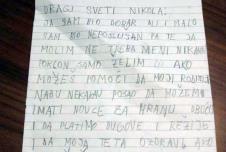 DRAGI SVETI NIKOLA:
JA SAM BIO DOBAR ALI I MALO
SAM BIO NEPOSLUŠAN PA TE JA
MOLIM NE TREBA MENI NIKAKAV
POKLON SAMO ŽELIM DA AKO
MOŽEŠ POMOĆI DA MOJI RODITELJI
NAĐU NEKAKAV POSAO DA MOŽEMO
IMATI NOVCE ZA HRANU, OBUĆU
I DA PLATIMO DUGOVE I REŽIJE
I DA MOJA TETA OZDRAVI AKO